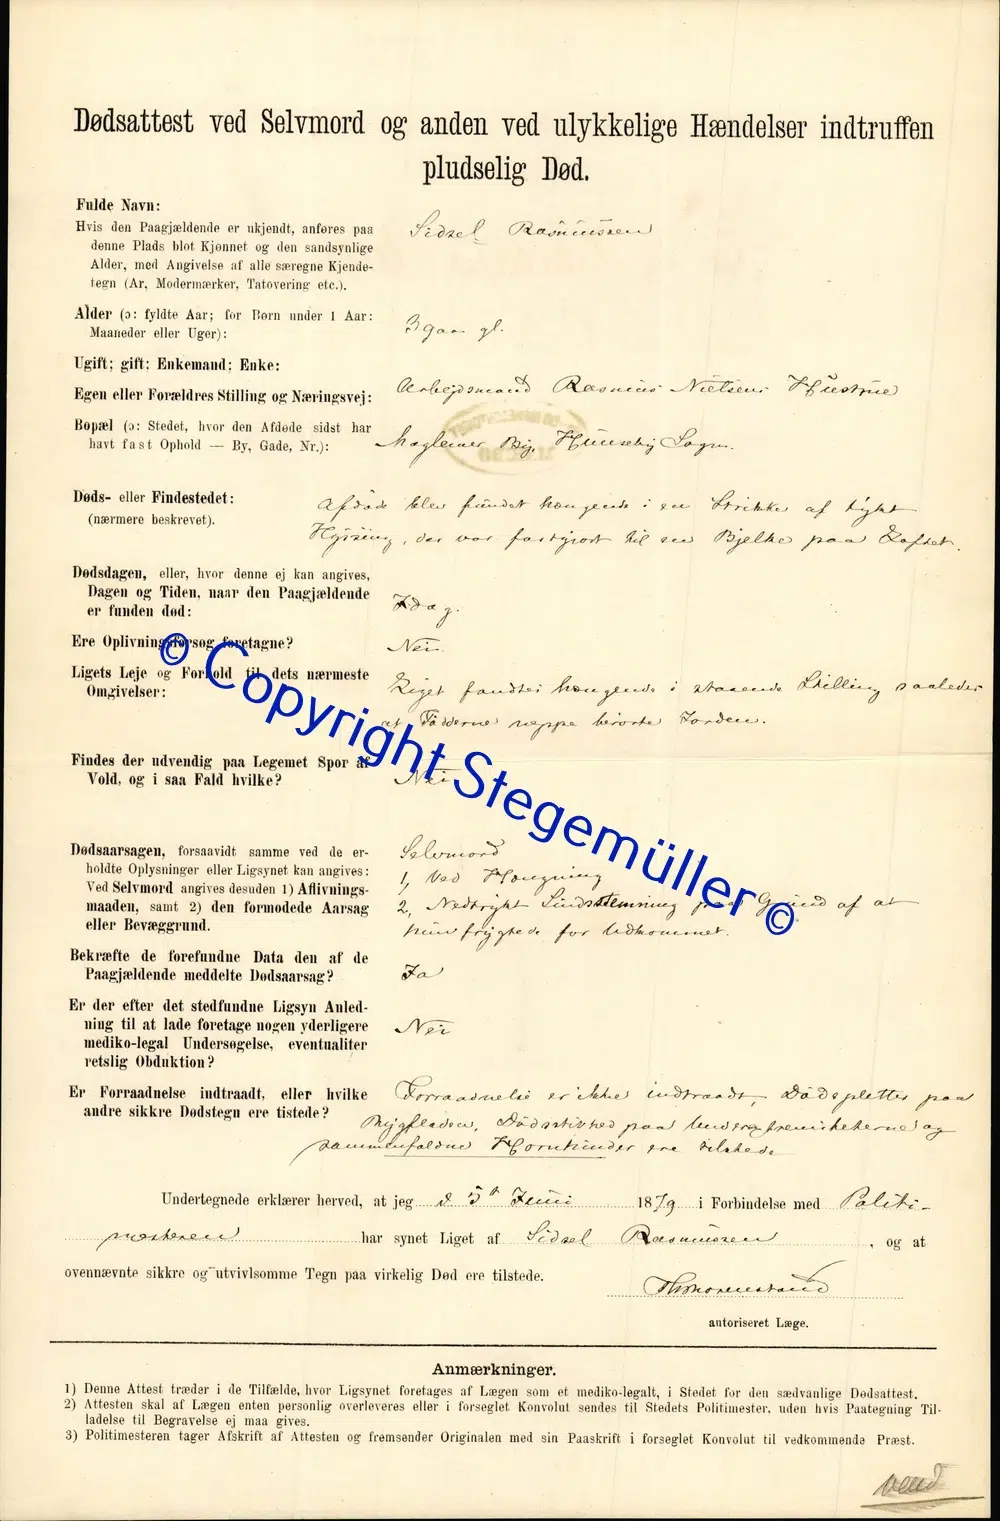 Dødsattest ved Selvmord og anden ved ulykkelige Hændelser indtruffen
pludselig Død.
Fulde Navn:
Hvis den Paagjældende er ukjendt, anføres paa
denne Plads blot Kjønnet og den sandsynlige
Alder, med Angivelse af alle særegne Kjende-
tegn (Ar, Modermærker, Tatovering etc.).
Sidsel Rasmussen
Alder (ɔ: fyldte Aar; for Børn under 1 Aar:
Maaneder eller Uger):
39 aar gl.
Ugift; gift; Enkemand; Enke:
Egen eller Forældres Stilling og Næringsvej:
Arbejdsmand Rasmus Nielsens Hustrue
Bopæl (ɔ: Stedet, hvor den Afdøde sidst har
havt fast Ophold — By, Gade, Nr.):
Maglemer By, Hunseby Sogn.
Døds- eller Findestedet:
(nærmere beskrevet).
Afdøde blev fundet hængende i en Strikke af tykt
Hyssing, der var fastgjort til en Bjelke paa Loftet.
Dødsdagen, eller, hvor denne ej kan angives,
Dagen og Tiden, naar den Paagjældende
er funden død:
Idag.
Ere Oplivningsforsøg foretagne?
Nei.
Ligets Leje og Forhold til dets nærmeste
Omgivelser:
Liget fandtes hængende i staaende Stilling saaledes
at Fødderne neppe berørte Jorden.
Findes der udvendig paa Legemet Spor af
Vold, og i saa Fald hvilke?
Nei
Dødsaarsagen, forsaavidt samme ved de er-
holdte Oplysninger eller Ligsynet kan angives:
Ved Selvmord angives desuden 1) Aflivnings-
maaden, samt 2) den formodede Aarsag
eller Bevæggrund.
Selvmord
1, Ved Hængning
2, Nedtrykt Sindsstemning paa Grund af at
hun frygtede for Udkommet.
Bekræfte de forefundne Data den af de
Paagjældende meddelte Dødsaarsag?
Ja
Er der efter det stedfundne Ligsyn Anled-
ning til at lade foretage nogen yderligere
mediko-legal Undersøgelse, eventualiter
retslig Obduktion?
Nei
Er Forraadnelse indtraadt, eller hvilke
andre sikkre Dødstegn ere tistede?
Forraadnelse er ikke indtraadt, Dødspletter paa
Rygfladen, Dødsstivhed paa Underextremiteterne og
sammenfaldne Hornhinder ere tilstede
Undertegnede erklærer herved, at jeg d 5te Juni 1879 i Forbindelse med Politi-
mesteren har synet Liget af Sidsel Rasmussen, og at
ovennævnte sikkre og utvivlsomme Tegn paa virkelig Død ere tilstede.
autoriseret Læge.
Anmærkninger.
1) Denne Attest træder i de Tilfælde, hvor Ligsynet foretages af Lægen som et mediko-legalt, i Stedet for den sædvanlige Dødsattest.
2) Attesten skal af Lægen enten personlig overleveres eller i forseglet Konvolut sendes til Stedets Politimester, uden hvis Paategning Til-
ladelse til Begravelse ej maa gives.
3) Politimesteren tager Afskrift af Attesten og fremsender Originalen med sin Paaskrift i forseglet Konvolut til vedkommende Præst.
vend
© Copyright Stegemüller ©